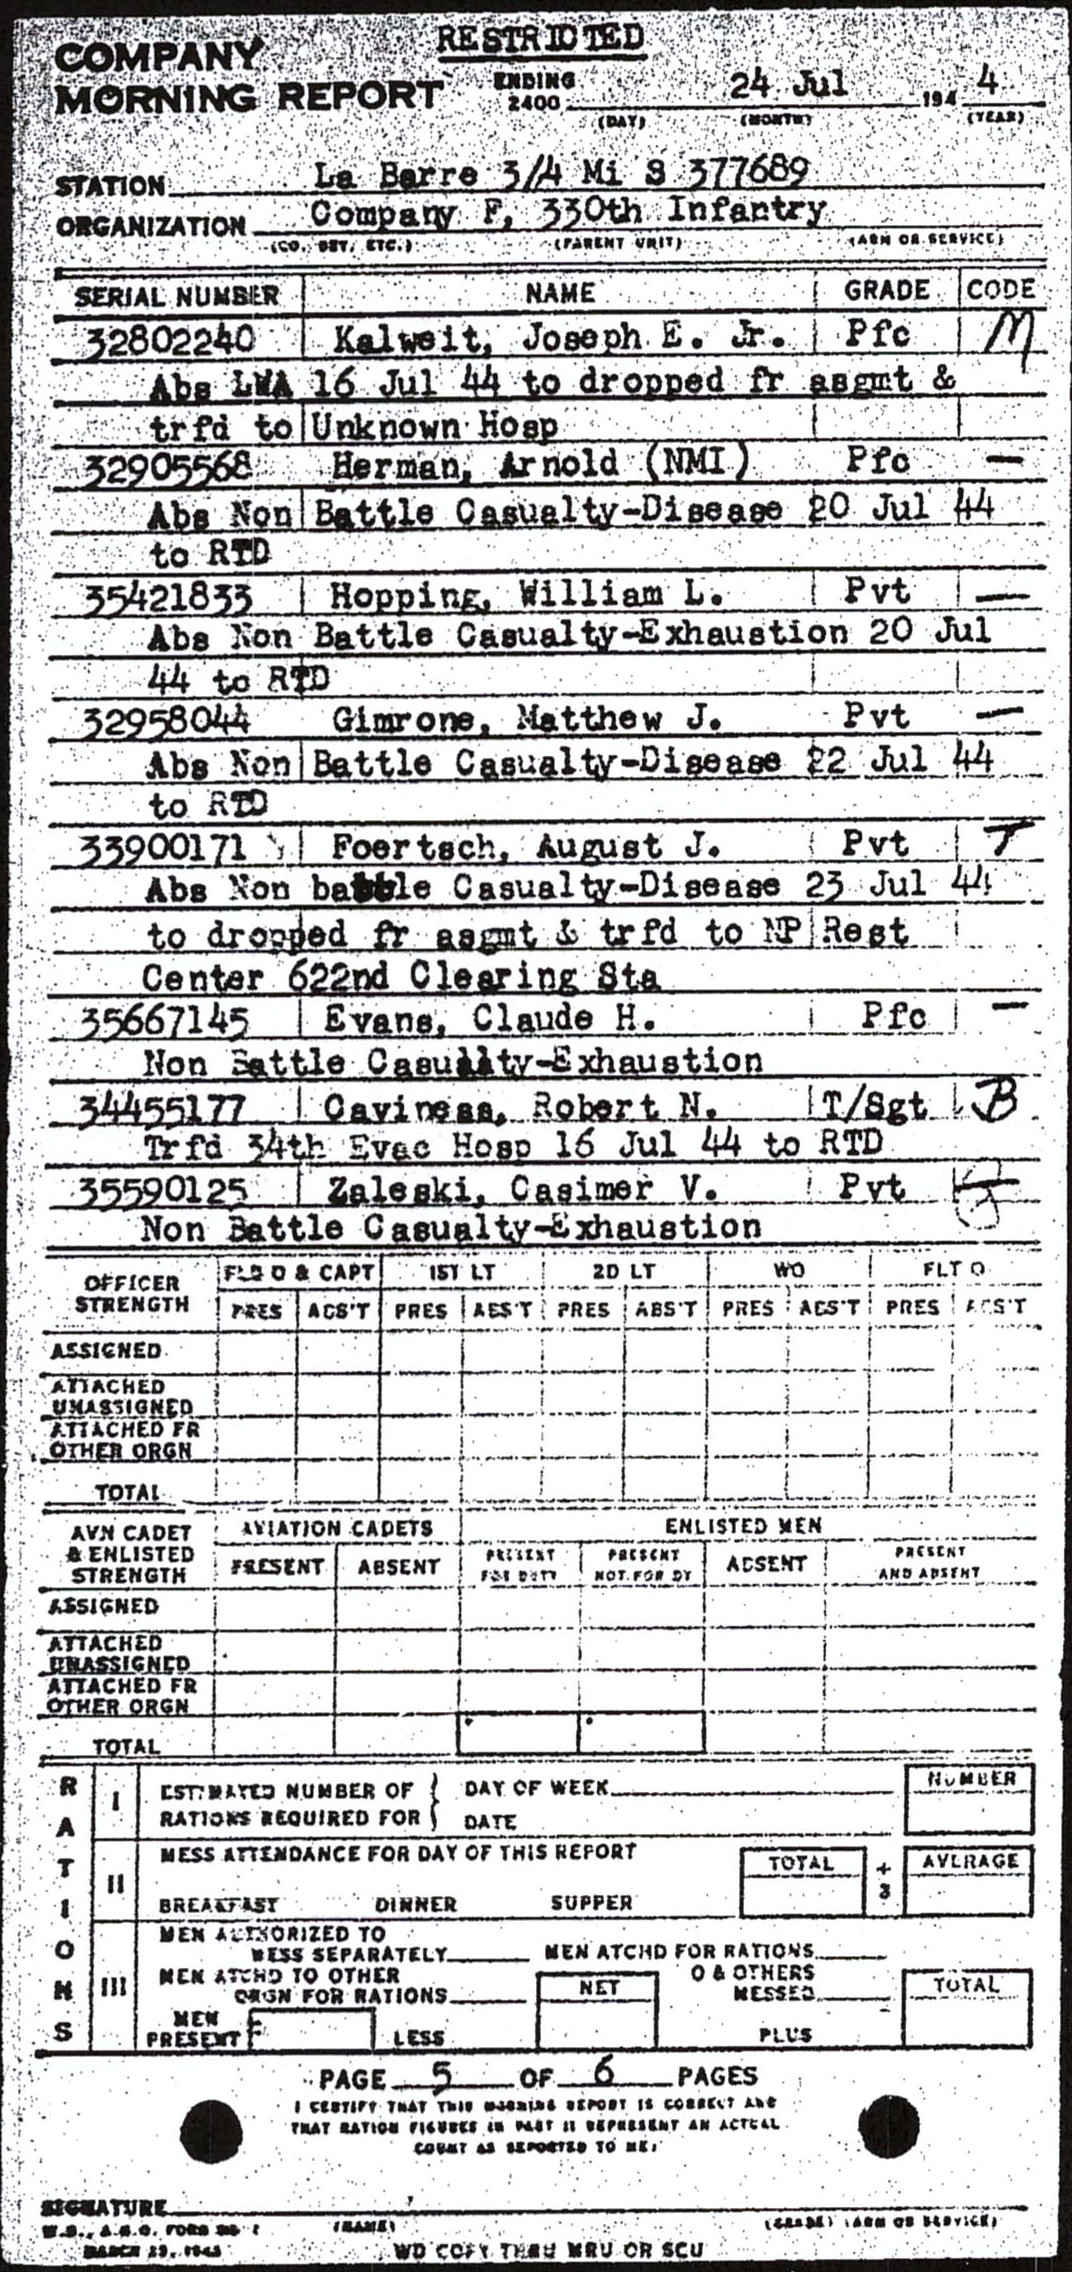 RESTRICTED
COMPANY
MORNING REPORT
ENDING
2400
24 Jul 194 4
(DAY) (MONTH) (YEAR)
STATION La Barre 3/4 Mi S 377689
ORGANIZATION Company F, 330th Infantry
(CO. DET, ETC.) (PARENT UNIT) (ARM OR SERVICE)
SERIAL NUMBER NAME GRADE CODE
32802240 Kalweit, Joseph E. Jr. Pfc M
Abs LWA 16 Jul 44 to dropped fr asgmt &
trfd to Unknown Hosp
32905568 Herman, Arnold (NMI) Pfc —
Abs Non Battle Casualty-Disease 20 Jul 44
to RTD
35421833 Hopping, William L. Pvt —
Abs Non Battle Casualty-Exhaustion 20 Jul
44 to RTD
32958044 Gimrone, Matthew J. Pvt —
Abs Non Battle Casualty-Disease 22 Jul 44
to RTD
33900171 Foertsch, August J. Pvt T
Abs Non battle Casualty-Disease 23 Jul 44
to dropped fr asgmt & trfd to NP Rest
Center 622nd Clearing Sta
35667145 Evans, Claude H. Pfc —
Non Battle Casualty-Exhaustion
34455177 Caviness, Robert N. T/Sgt B
Trfd 34th Evac Hosp 16 Jul 44 to RTD
35590125 Zaleski, Casimer V. Pvt
Non Battle Casualty-Exhaustion
OFFICER STRENGTH FLD O & CAPT 1ST LT 2D LT WO FLT O
PRES ABS'T PRES ABS'T PRES ABS'T PRES ABS'T PRES ABS'T
ASSIGNED
ATTACHED
UNASSIGNED
ATTACHED FR
OTHER ORGN
TOTAL
AVN CADET
& ENLISTED
STRENGTH
AVIATION CADETS ENLISTED MEN
PRESENT ABSENT PRESENT FOR DUTY PRESENT NOT FOR DY ABSENT PRESENT AND ABSENT
ASSIGNED
ATTACHED
UNASSIGNED
ATTACHED FR
OTHER ORGN
TOTAL
RATIONS
I ESTIMATED NUMBER OF } DAY OF WEEK NUMBER
RATIONS REQUIRED FOR } DATE
II MESS ATTENDANCE FOR DAY OF THIS REPORT TOTAL ÷ 3 AVERAGE
BREAKFAST DINNER SUPPER
III MEN AUTHORIZED TO
MESS SEPARATELY MEN ATCHD FOR RATIONS
MEN ATCHD TO OTHER
ORGN FOR RATIONS NET O & OTHERS
MESSED TOTAL
MEN
PRESENT LESS PLUS
PAGE 5 OF 6 PAGES
I CERTIFY THAT THIS MORNING REPORT IS CORRECT AND
THAT RATION FIGURES IN PART II REPRESENT AN ACTUAL
COUNT AS REPORTED TO ME:
SIGNATURE
(NAME) (GRADE) (ARM OR SERVICE)
W.D., A.G.O. FORM NO. 1
MARCH 23, 1943
WD COPY THRU MRU OR SCU